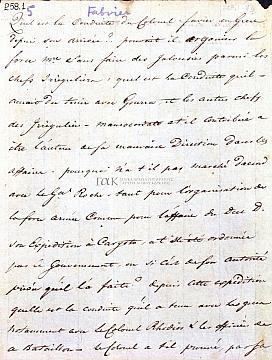 258.1
5 Fabvier
Quel est la Conduite du Colonel favier en Grece
depuis son arrivée? pouvait il organiser la
force sans faire des Jalousies parmi les
chefs Irreguliers; quel est la Conduite qu'il
aurait du tenir avec Goura et les autres chefs
des Irreguliers - at-il contribué a
etre l'auteur de sa mauvaise Direction dans les
affaire. pourquoi n'a t'il pas marché d'accord
avec le Gal Roche tant pour l'organisation de
la force armée Comme pour l'affaire du duc D.
son Expedition à Caryste a t'elle été ordonnée
par le Gouvernement ou si c'est de son autorité
privée qu'il la faite? depuis cette expédition
quelle est la conduite qu'il a tenu avec les
notamment avec le Colonel Rhodios & les officiers de
Bataillon le Colonel a t'il prouvé par sa